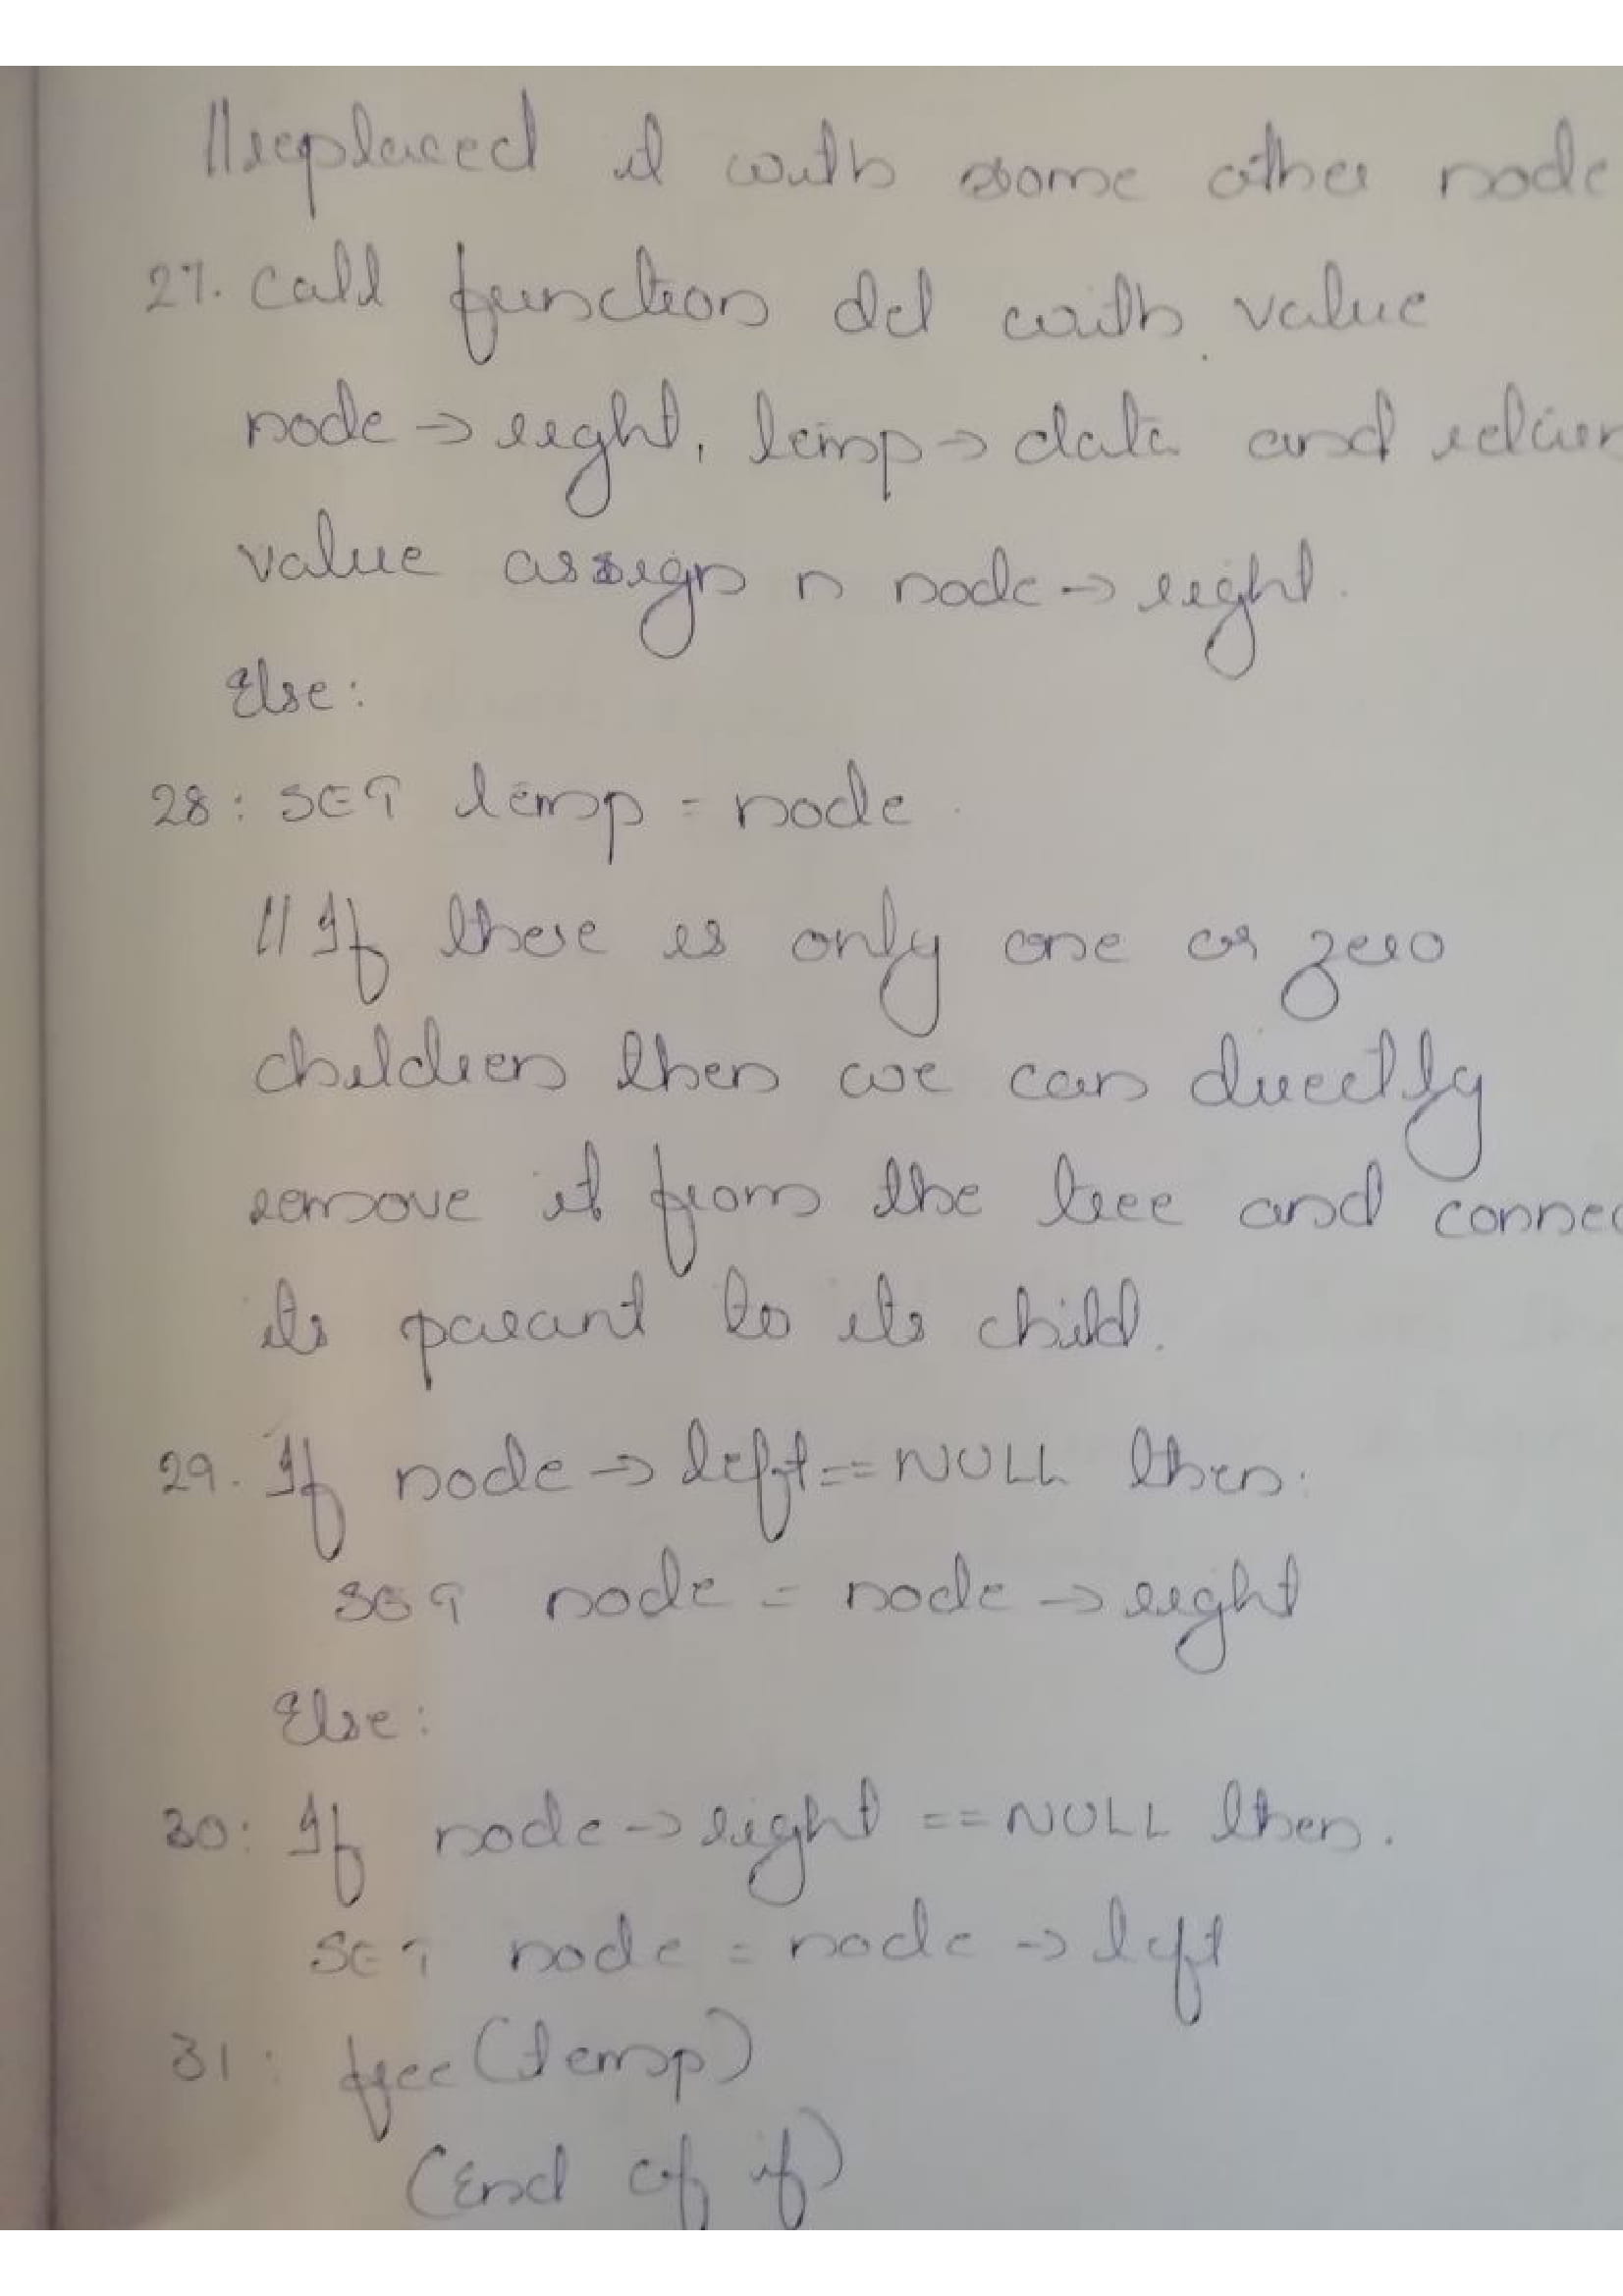 //replaced it with some other node
27. call function del with value
node → right, temp → data and return
value assign n node → right.
Else:
28: SET temp = node.
// If there is only one or zero
children then we can directly
remove it from the tree and connec
its parant to its child.
29. If node → left == NULL then:
SET node = node → right
Else:
30: If node → right == NULL then.
SET node = node → left
31: free(temp)
(End of if)